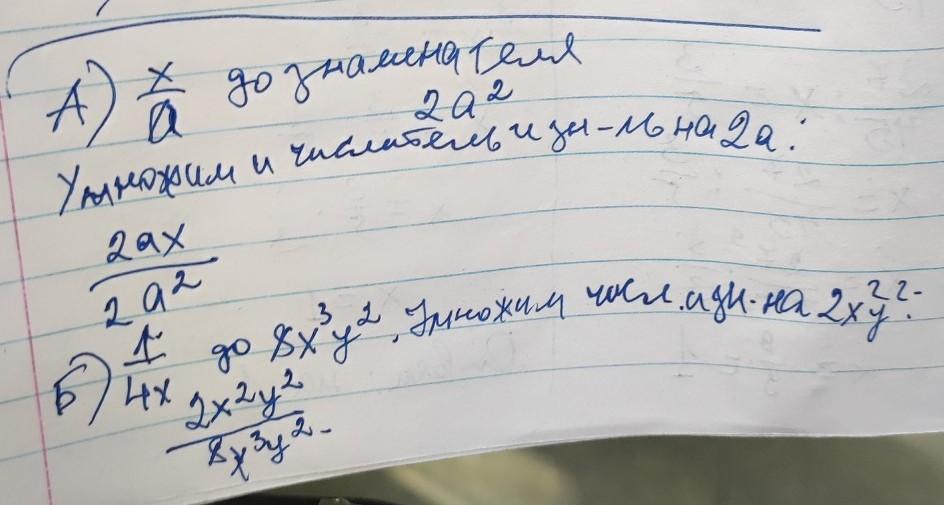 А) x/a до знаменателя 2a²
Умножим и числитель и зн-ль на 2a:
2ax/2a²
Б) 1/4x до 8x³y². Умножим числ. и зн. на 2x²y²:
2x²y²/8x³y².